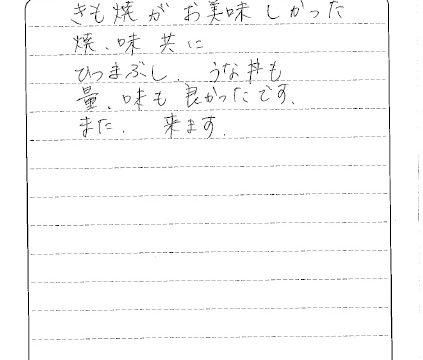 きも焼がお美味しかった
焼、味共に
ひつまぶし、うな丼も
量、味も良かったです、
また、来ます、